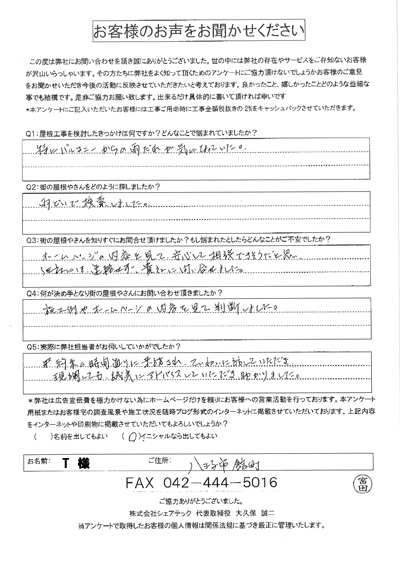 お客様のお声をお聞かせください
この度は弊社にお問い合わせを頂き誠にありがとうございました。世の中には弊社の存在やサービスをご存知ないお客様
が沢山いらっしゃいます。その方たちに弊社をよく知って頂くためのアンケートにご協力頂けないでしょうかお客様のご意見
をお聞かせいただき今後の活動に反映させていただきたいと考えております。良かったこと、嬉しかったことどのような些細な
事でも結構です。是非ご協力お願い致します。出来るだけ具体的に書いて頂ければ幸いです
*本アンケートにご記入いただいたお客様には工事ご用命時に工事金額税抜きの2%をキャッシュバックさせていただきます。
Q1:屋根工事を検討したきっかけは何ですか?どんなことで悩まれていましたか?
特にバルコニーからの雨だれが気になっていた。
Q2:街の屋根やさんをどのように探しましたか?
ネットで検索しました。
Q3:街の屋根やさんを知りすぐにお問合せ頂けましたか?もし悩まれたとしたらどんなことがご不安でしたか?
ホームページの内容を見て、安心して相談できそうだと思い
Q4:何が決め手となり街の屋根やさんにお問い合わせ頂きましたか?
施工例やホームページの内容を見て判断しました。
Q5:実際に弊社担当者がお伺いしていかがでしたか?
約束の時間通りに来訪され、ていねいに話していただき
現調しても、誠実にアドバイスしていただき助かりました。
*弊社は広告宣伝費を極力かけない為にホームページだけを頼りにお客様への営業活動を行っております。本アンケート
用紙またはお客様宅の調査風景や施工状況を随時ブログ形式のインターネットに掲載させていただいております。上記内容
をインターネットや印刷物に掲載させていただいてもよろしいでしょうか?
( )名前を出してもよい (○)イニシャルなら出してもよい
お名前: T 様 ご住所: 八王子市 館町
FAX 042-444-5016
ご協力ありがとうございました。
株式会社シェアテック 代表取締役 大久保 誠二
当アンケートで取得したお客様の個人情報は関係法規に基づき厳正に管理いたします。